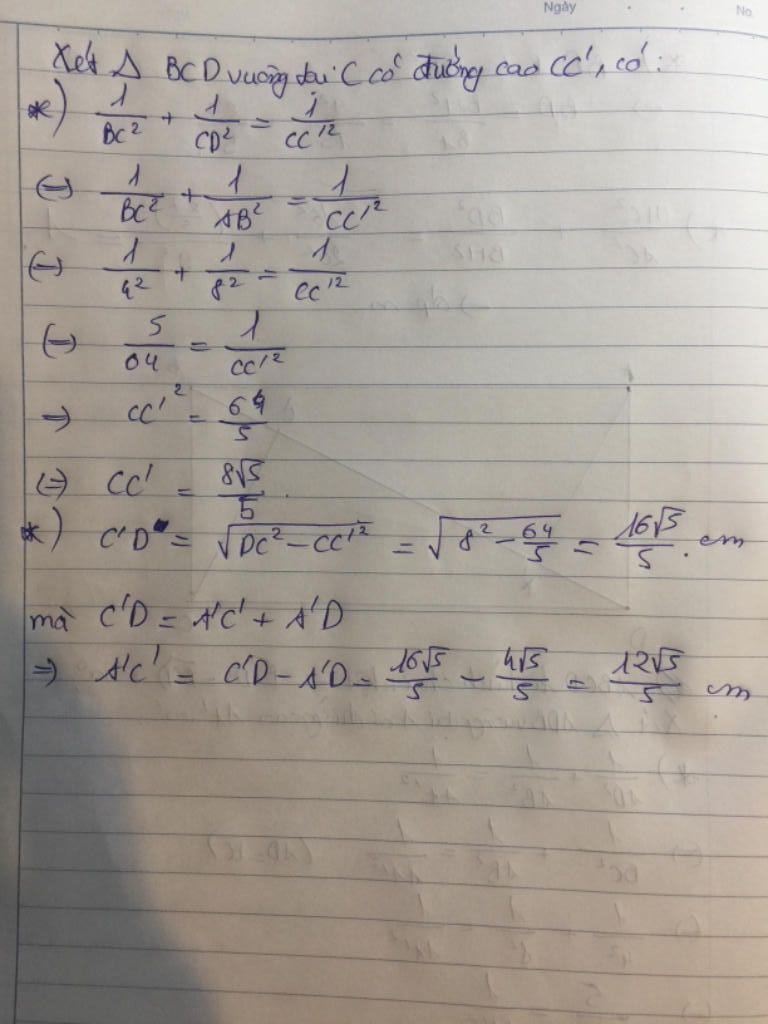 Ngày
No.
Xét Δ BCD vuông tại C có đường cao CC', có:
*) 1/BC² + 1/CD² = 1/CC'²
(=) 1/BC² + 1/AB² = 1/CC'²
(=) 1/4² + 1/8² = 1/CC'²
(=) 5/64 = 1/CC'²
=> CC'² = 64/5
(=) CC' = 8√5/5.
*) C'D = √DC² - CC'² = √8² - 64/5 = 16√5/5. cm
mà C'D = A'C' + A'D
=> A'C' = C'D - A'D = 16√5/5 - 4√5/5 = 12√5/5 cm